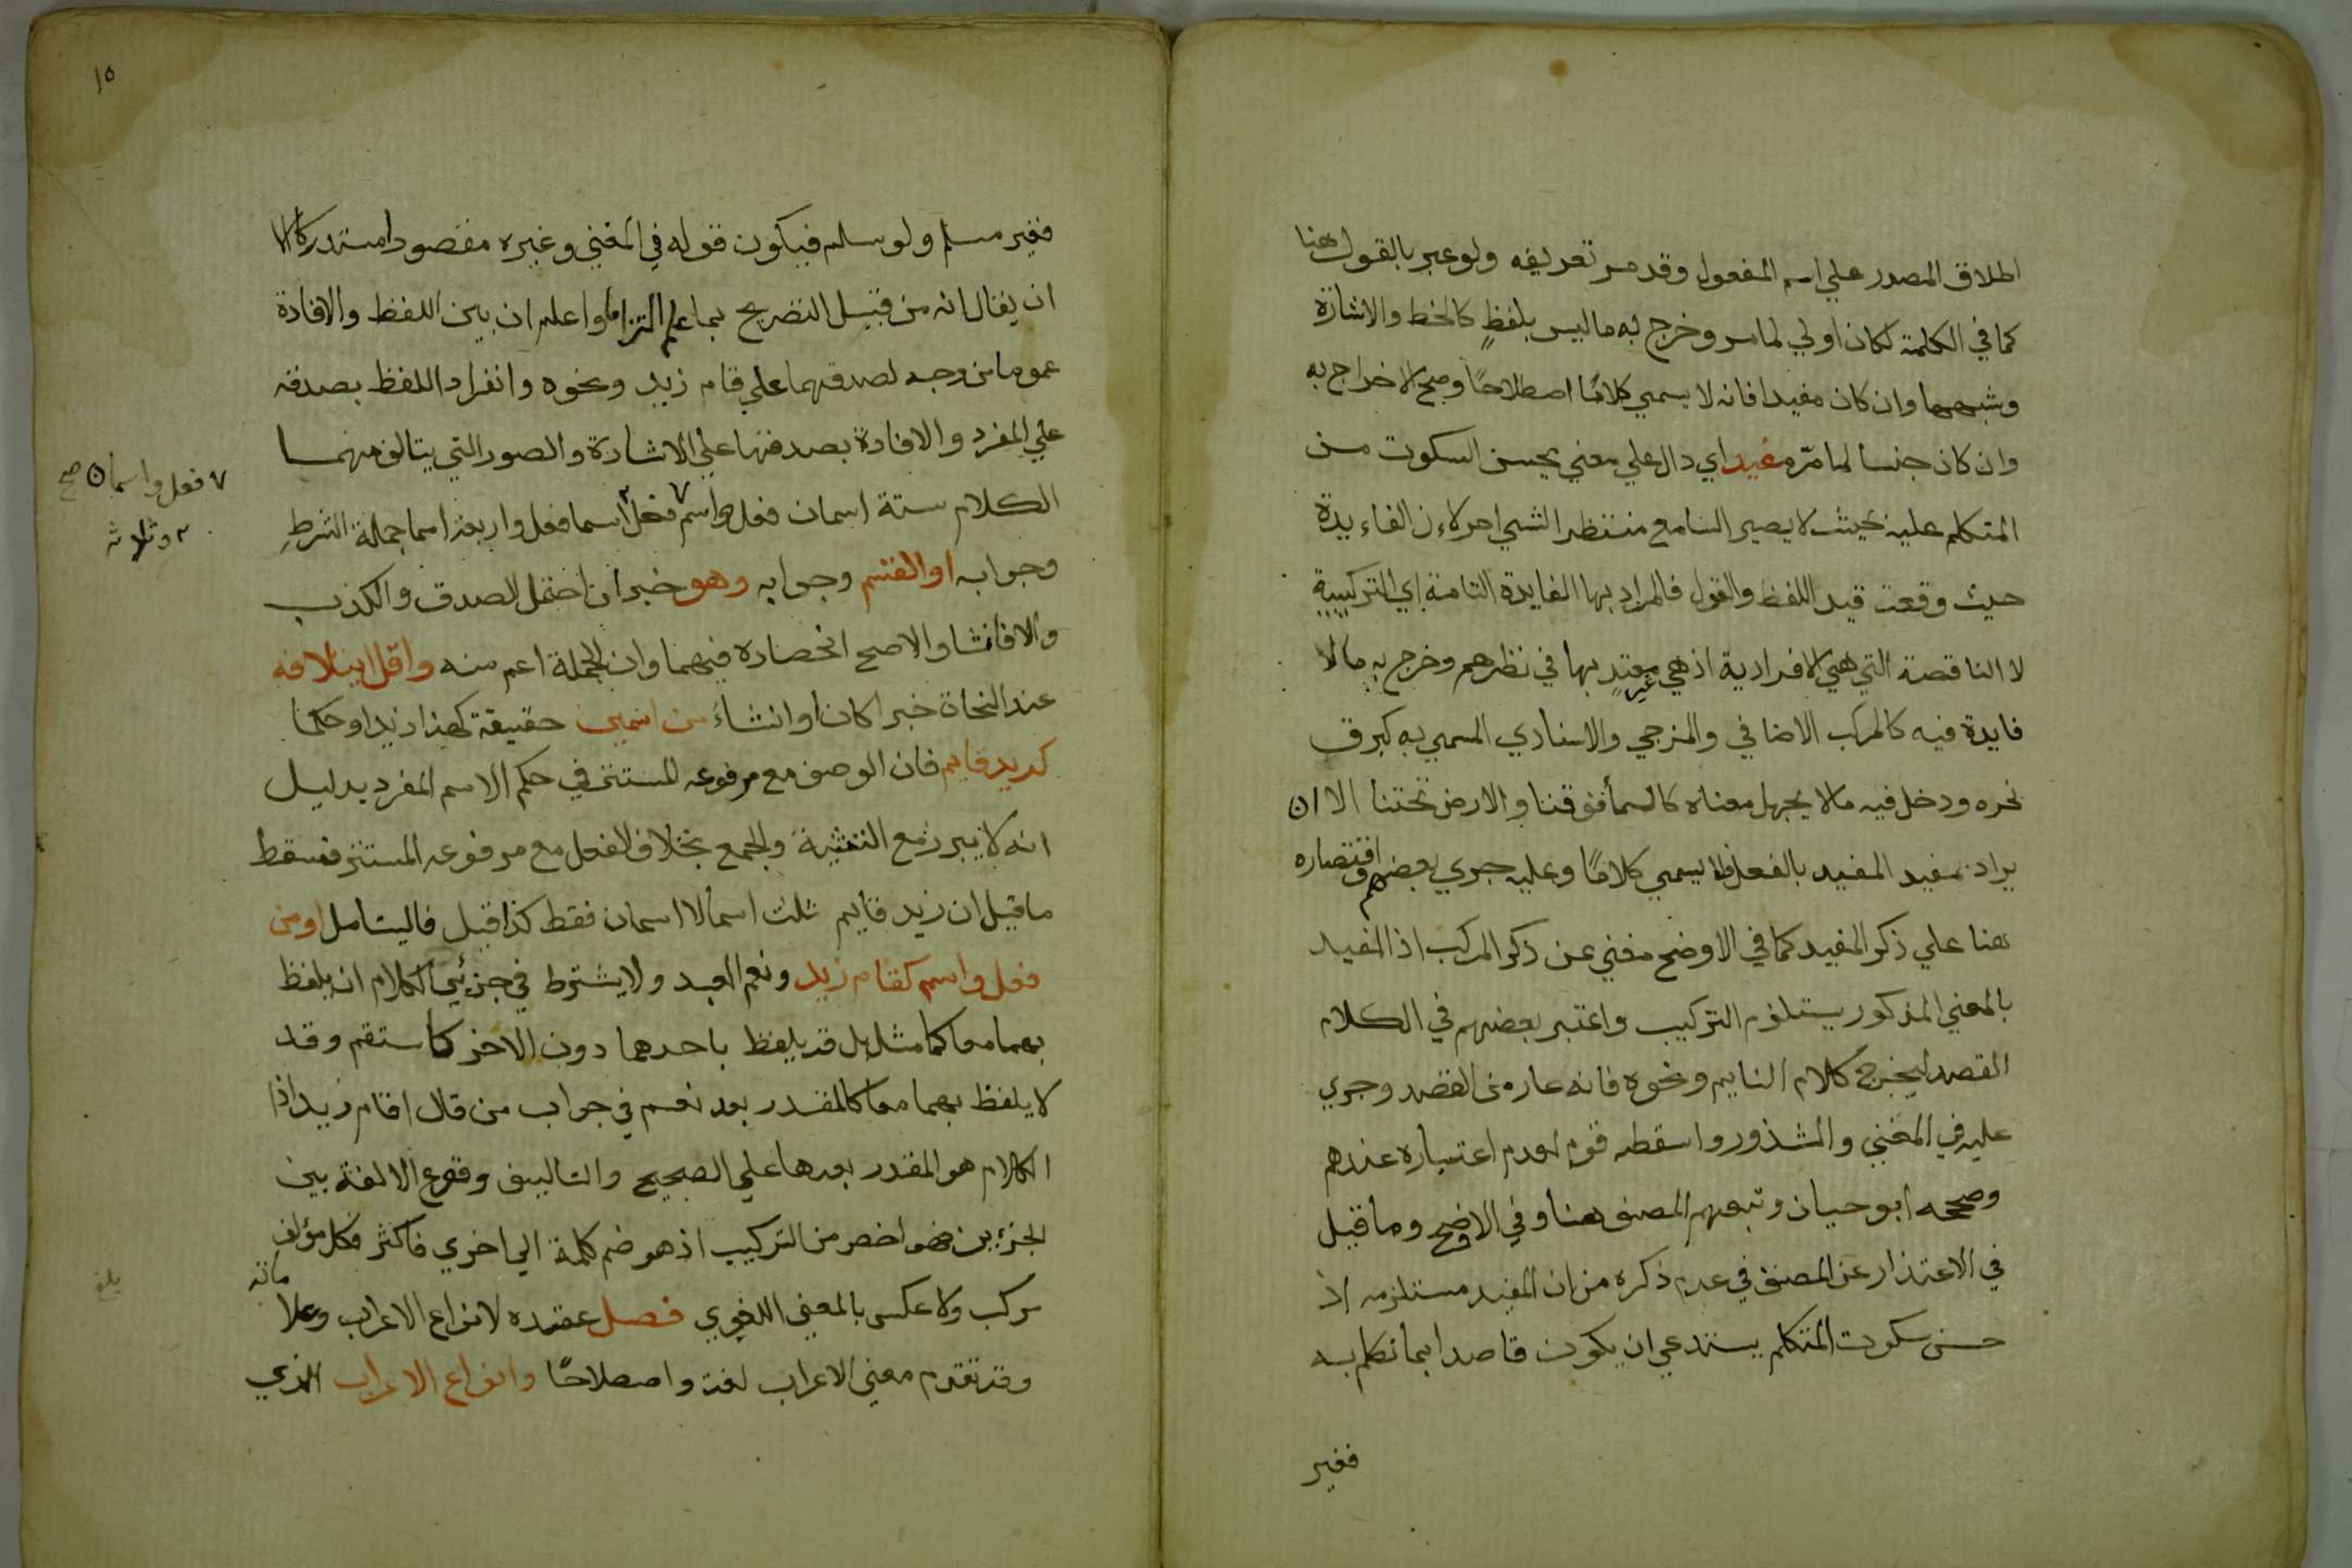 اطلاق المصدر علي اسم المفعول وقد مر تعريفه ولو عبر بالقول هنا
كما في الكلمة لكان اولي لما مر وخرج به ما ليس بلفظٍ كالخط والاشارة
وشبههما وان كان مفيدا فانه لا يسمي كلامًا اصطلاحًا وصح الاخراج به
وان كان جنسا لما مرّ مفيد اي دال علي معني يحسن السكوت من
المتكلم عليه بحيث لا يصير السامع منتظرا لشي اخر لان الفايدة
حيث وقعت قيد اللفظ والقول فالمراد بها الفايدة التامة اي التركيبية
لا الناقصة التي هي الافرادية اذ هي غير معتدٍ بها في نظرهم وخرج به ما لا
فايدة فيه كالمركب الاضافي والمزجي والاسنادي المسمي به كبرق
نحره ودخل فيه ما لا يجهل معناه كالسما فوقنا والارض تحتنا الا ان
يراد بمفيد المفيد بالفعل فلا يسمي كلامًا وعليه جري بعضهم واقتصاره
هنا علي ذكر المفيد كما في الاوضح مغني عن ذكر المركب اذ المفيد
بالمعني المذكور يستلزم التركيب واعتبر بعضهم في الكلام
القصد ليخرج كلام النايم ونحوه فانه عار من القصد وجري
عليه في المغني والشذور واسقطه قوم لعدم اعتباره عندهم
وصححه ابو حيان وتبعهم المصنف هنا وفي الاوضح وما قيل
في الاعتذار عن المصنف في عدم ذكره من ان المفيد مستلزمه اذ
حسن سكوت المتكلم يستدعي ان يكون قاصدا لما تكلم به
فغير
١٥
فغير مسلم ولو سلم فيكون قوله في المغني وغيره مقصود مستدركا الا
ان يقال انه من قبيل التصريح بما علم التزاما واعلم ان بين اللفظ والافادة
عموما من وجه لصدقهما علي قام زيد ونحوه وانفراد اللفظ بصدقه
علي المفرد والافادة بصدقها علي الاشارة والصور التي يتالف منهما
الكلام ستة اسمان فعل واسم ٧ فعل ٢ اسما فعل واربعة اسما جملة الشرط
٧ فعل واسمان صح
٢ وثلاثة
وجوابه او القسم وجوابه وهو خبر ان احتمل الصدق والكذب
والا فانشا والاصح انحصاره فيهما وان الجملة اعم منه واقل ايتلافه
عند النحاة خبرا كان او انشاء من اسمين حقيقة كهذا زيد او حكما
كزيد قايم فان الوصف مع مرفوعه المستتر في حكم الاسم المفرد بدليل
انه لا يبرز مع التثنية والجمع بخلاف الفعل مع مرفوعه المستتر فسقط
ما قيل ان زيد قايم ثلث اسما لا اسمان فقط كذا قيل فاليتامل او من
فعل واسم كقام زيد ونعم العبد ولا يشترط في جزئي الكلام ان يلفظ
بهما معا كما مثل بل قد يلفظ باحدهما دون الاخر كاستقم وقد
لا يلفظ بهما معا كالمقدر بعد نعم في جواب من قال اقام زيد اذ
الكلام هو المقدر بعدها علي الصحيح والتاليف وقوع الالفة بين
الجزءين فهو اخص من التركيب اذ هو ضم كلمة الي اخري فاكثر فكل مؤلف
مركب ولا عكس بالمعني اللغوي فصل عقده لانواع الاعراب وعلاماته
وقد تقدم معني الاعراب لغة واصطلاحًا وانواع الاعراب الذي
بلغ